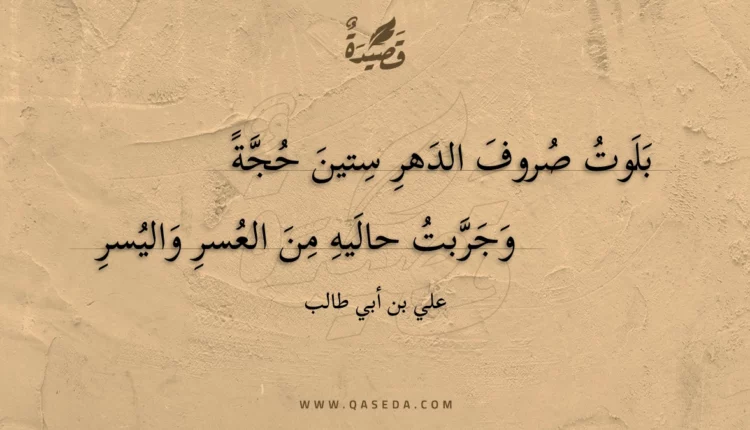 قَصِيدَةٌ
بَلَوتُ صُروفَ الدَهرِ سِتينَ حُجَّةً
وَجَرَّبتُ حالَيهِ مِنَ العُسرِ وَاليُسرِ
علي بن أبي طالب
WWW.QASEDA.COM